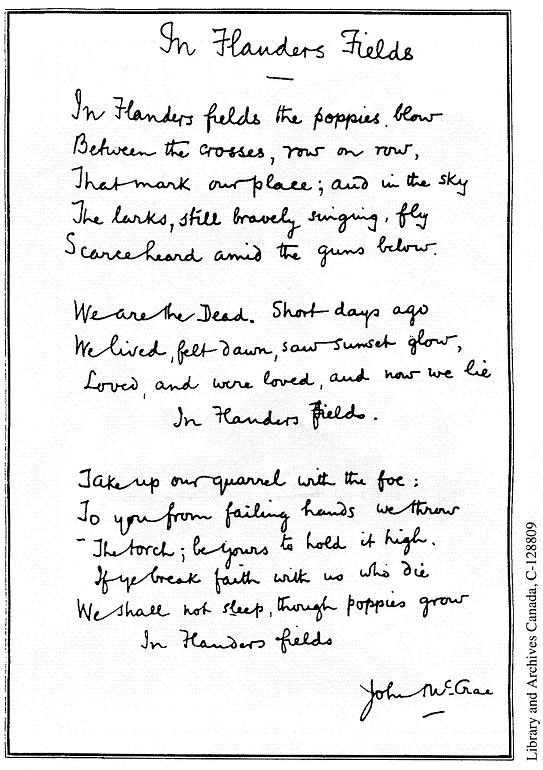 In Flanders Fields
In Flanders fields the poppies blow
Between the crosses, row on row,
That mark our place; and in the sky
The larks, still bravely singing, fly
Scarce heard amid the guns below.
We are the Dead. Short days ago
We lived, felt dawn, saw sunset glow,
Loved, and were loved, and now we lie
In Flanders Fields.
Take up our quarrel with the foe:
To you from failing hands we throw
The torch; be yours to hold it high.
If ye break faith with us who die
We shall not sleep, though poppies grow
In Flanders fields
John McCrae
Library and Archives Canada, C-128809